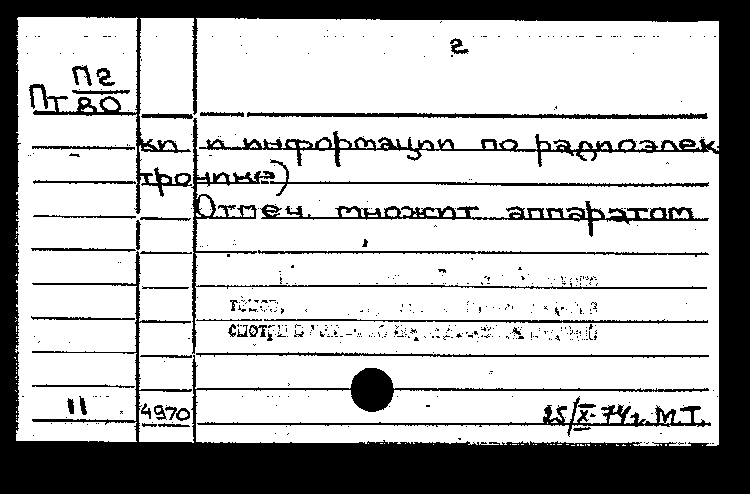 2
Пт П2/80
ки и информации по радиоэлек
тронике)
Отмеч. множит аппаратом
томов,
смотри
11 4970 25/X-74г. М.Т.